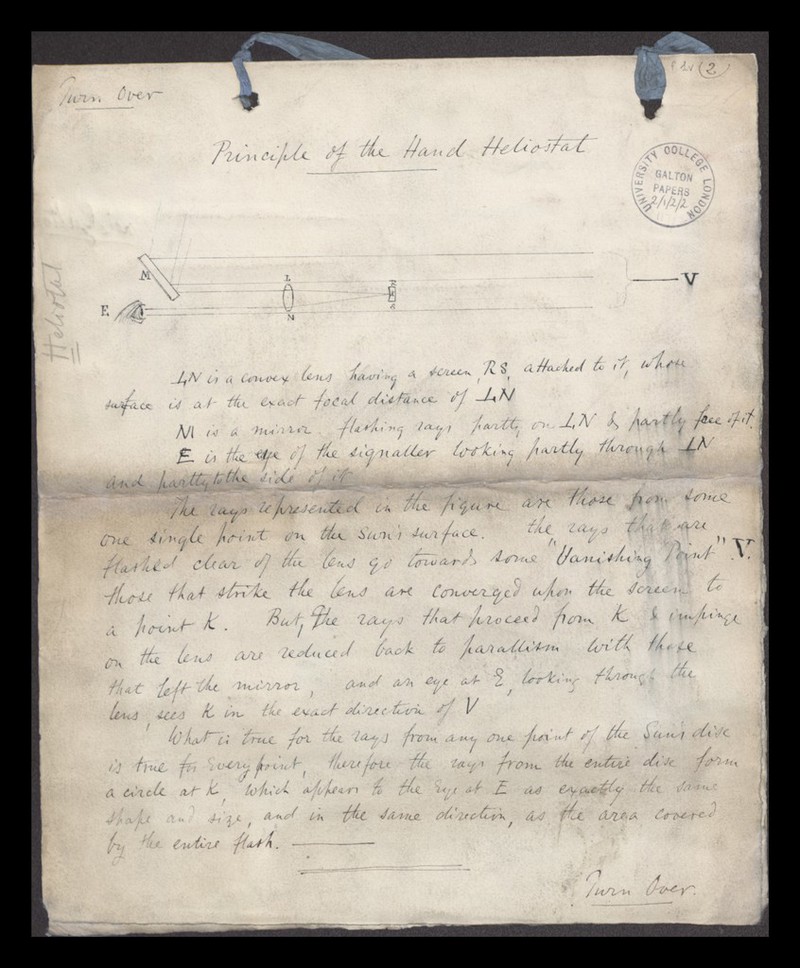 Turn Over
(2)
Principle of the Hand Heliostat
UNIVERSITY COLLEGE LONDON
GALTON
PAPERS
2/1/2/2
Heliostat
M
L
R
K
V
E
N
S
LN is a convex lens having a screen, RS, attached to it, whose
surface is at the exact focal distance of LN
M is a mirror flashing rays partly on LN & partly free of it.
E is the eye of the signaller looking partly through LN
and partly to the side of it
The rays represented in the figure are those from some
one single point on the Sun's surface. the rays that are
flashed clear of the lens go towards some "Vanishing Point" V.
those that strike the lens are converged upon the screen to
a point K. But, The rays that proceed from K & impinge
on the lens are reduced back to parallism with those
that left the mirror, and an eye at E, looking through the
lens, sees K in the exact direction of V
What is true for the rays from any one point of the Sun's disc
is true for Every point, therefore the rays from the entire disc form
a circle at K, which appears to the Eye at E as exactly the same
shape and size, and in the same direction, as the area covered
by the entire flash.
Turn Over.